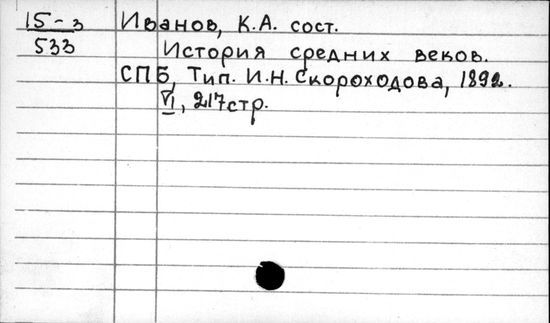 15-3 Иванов, К.А. сост.
533 История средних веков.
СПБ, Тип. И.Н. Скороходова, 1892.
VI, 217стр.